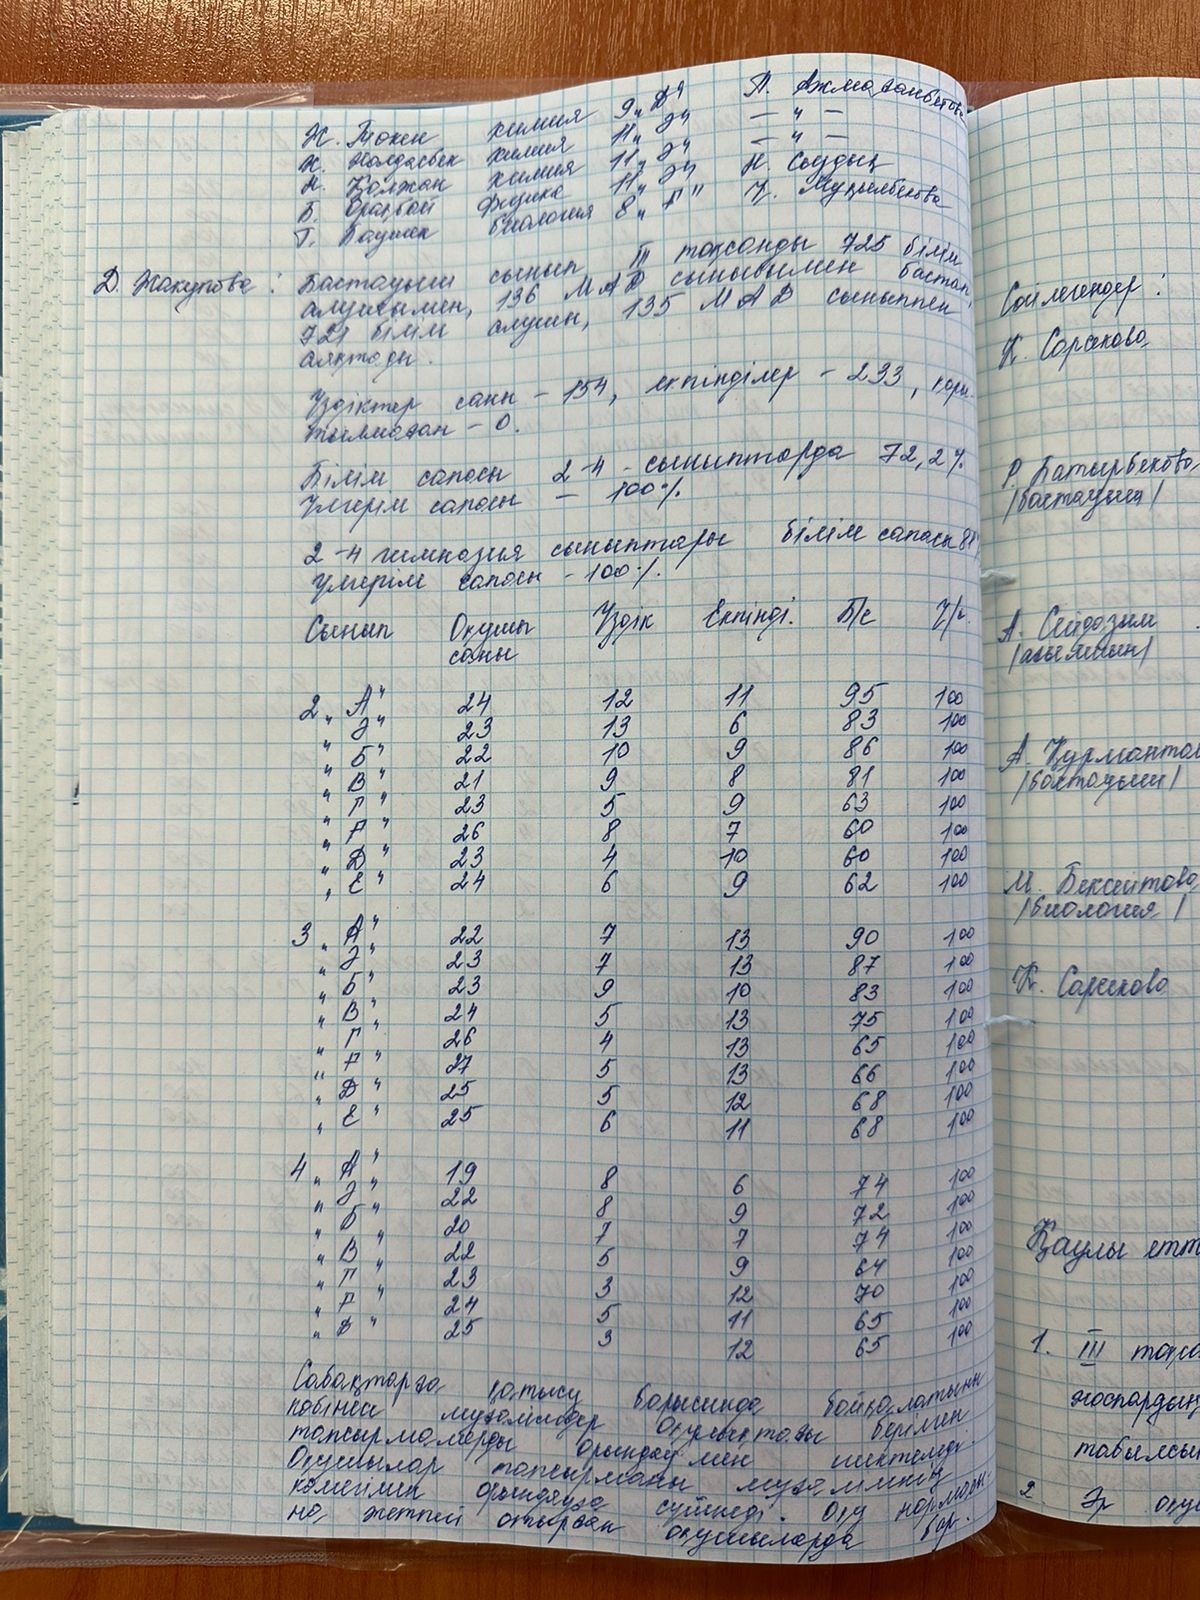 Н. Төкен химия 9 „Д" А. Ажмаганбетова
Ж. Жолдасбек химия 11 „Ә" — " —
Н. Қалжан химия 11 „Ә" — " —
Б. Оразбай физика 11 „Ә" Н. Саудың
Г. Баушек биология 8 „Г" Ц. Муқылбекова
Д. Жакупова: Бастауыш сынып III тоқсанды 725 білім
алушымен, 136 МАД сыныбымен бастап,
721 білім алушы, 135 МАД сыныппен
аяқтады.
Үздіктер саны – 154, екпінділер – 293, қоры-
тылмаған – 0.
Білім сапасы 2-4 - сыныптарда 72,2%.
Үлгерім сапасы – 100%.
2-4 гимназия сыныптары білім сапасы 81%
үлгерім сапасы – 100%.
Сынып Оқушы саны Үздік Екпінді. Б/с Ү/с.
2 „А" 24 12 11 95 100
„Ә" 23 13 6 83 100
„Б" 22 10 9 86 100
„В" 21 9 8 81 100
„Г" 23 5 9 63 100
„Ғ" 26 8 7 60 100
„Д" 23 4 10 60 100
„Е" 24 6 9 62 100
3 „А" 22 7 13 90 100
„Ә" 23 7 13 87 100
„Б" 23 9 10 83 100
„В" 24 5 13 75 100
„Г" 26 4 13 65 100
„Ғ" 27 5 13 66 100
„Д" 25 5 12 68 100
„Е" 25 6 11 68 100
4 „А" 19 8 6 74 100
„Ә" 22 8 9 72 100
„Б" 20 7 7 74 100
„В" 22 5 9 64 100
„Г" 23 3 12 70 100
„Ғ" 24 5 11 65 100
„Д" 25 3 12 65 100
Сабақтарға қатысу барысында байқалатыны
көбінесі мұғалімдер оқулықтағы берілген
тапсырмаларды орындаумен шектеледі.
Оқушылар тапсырманы мұғалімнің
көмегімен орындауға сүйенеді. Оқу нормасы-
на жетпей отырған оқушыларда бар.
Сөйлегендер:
К. Саракова
Р. Батырбекова
/бастауыш/
А. Сейдазым
/ағылшын/
А. Құрмантае
/бастауыш/
М. Бексеитова
/биология/
К. Саракова
Қаулы етті
1. III тоқса
жоспардың
табылсы
2. Әр оқу